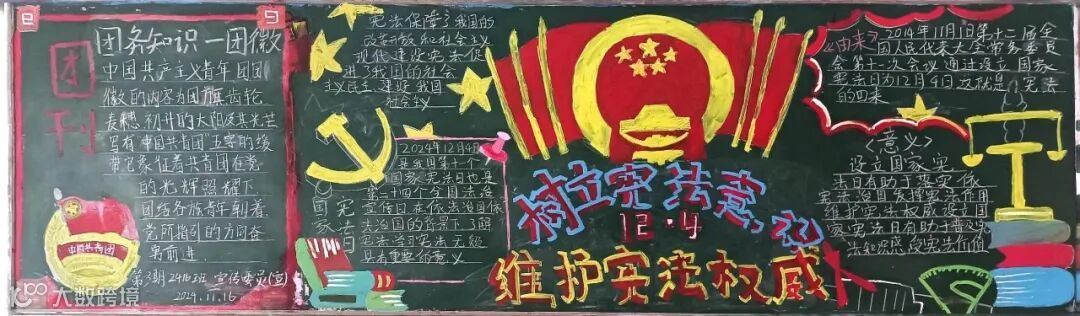 团刊
团务知识—团徽
中国共产主义青年团团
徽的内容为团旗、齿轮、
麦穗、初升的太阳及其光芒
写有"中国共青团"五字的绶
带它象征着共青团在党
的光辉照耀下
团结各族青年朝着
党所指引的方向奋
勇前进
中国共青团
第3期 2416班 宣传委员(宣)
2024.11.16
大数跨境
宪法保障了我国的
改革开放和社会主义
现代建设宪法促
进了我国的社会
主义民主建设 我国
社会主义
国家宪法日
2024年12月4日
是我国第十一个
国家宪法日也是
第二十四个全国法治
宣传日在依法治国依
法治国的背景下了解
宪法学习宪法无疑
具有重要的意义
树立宪法意识
12·4
维护宪法权威
《由来》2014年11月1日第十二届全
国人民代表大会常务委员
会第十一次会议通过设立国家
宪法日为12月4日这就是宪法
的由来
《意义》
设立国家宪
法日有助于落实依
宪法治国发挥宪法作用
维护宪法权威设立国
家宪法日有助于普及宪